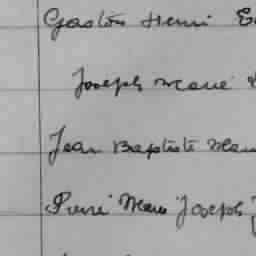 Gaston Henri
Joseph Marie
Jean Baptiste
Pierre Marie Joseph